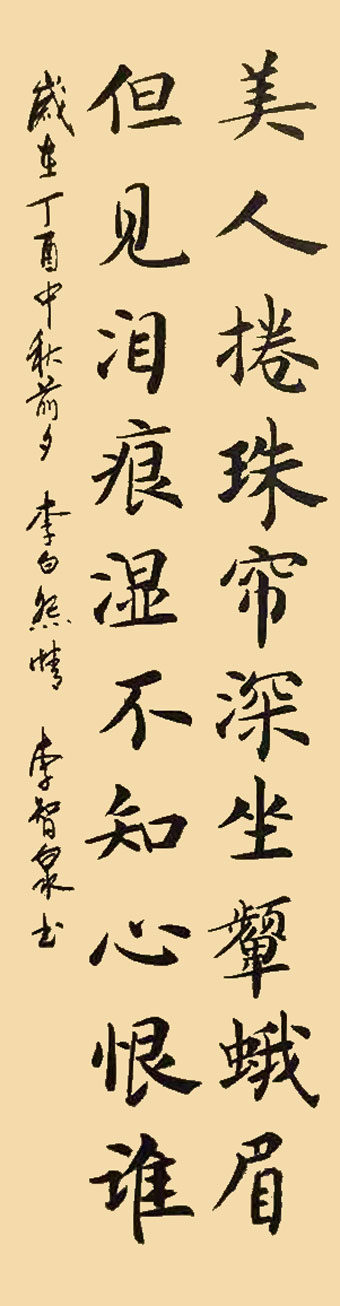 美人捲珠帘深坐颦蛾眉
但见泪痕湿不知心恨谁
岁在丁酉中秋前夕 李白怨情 李智泉书